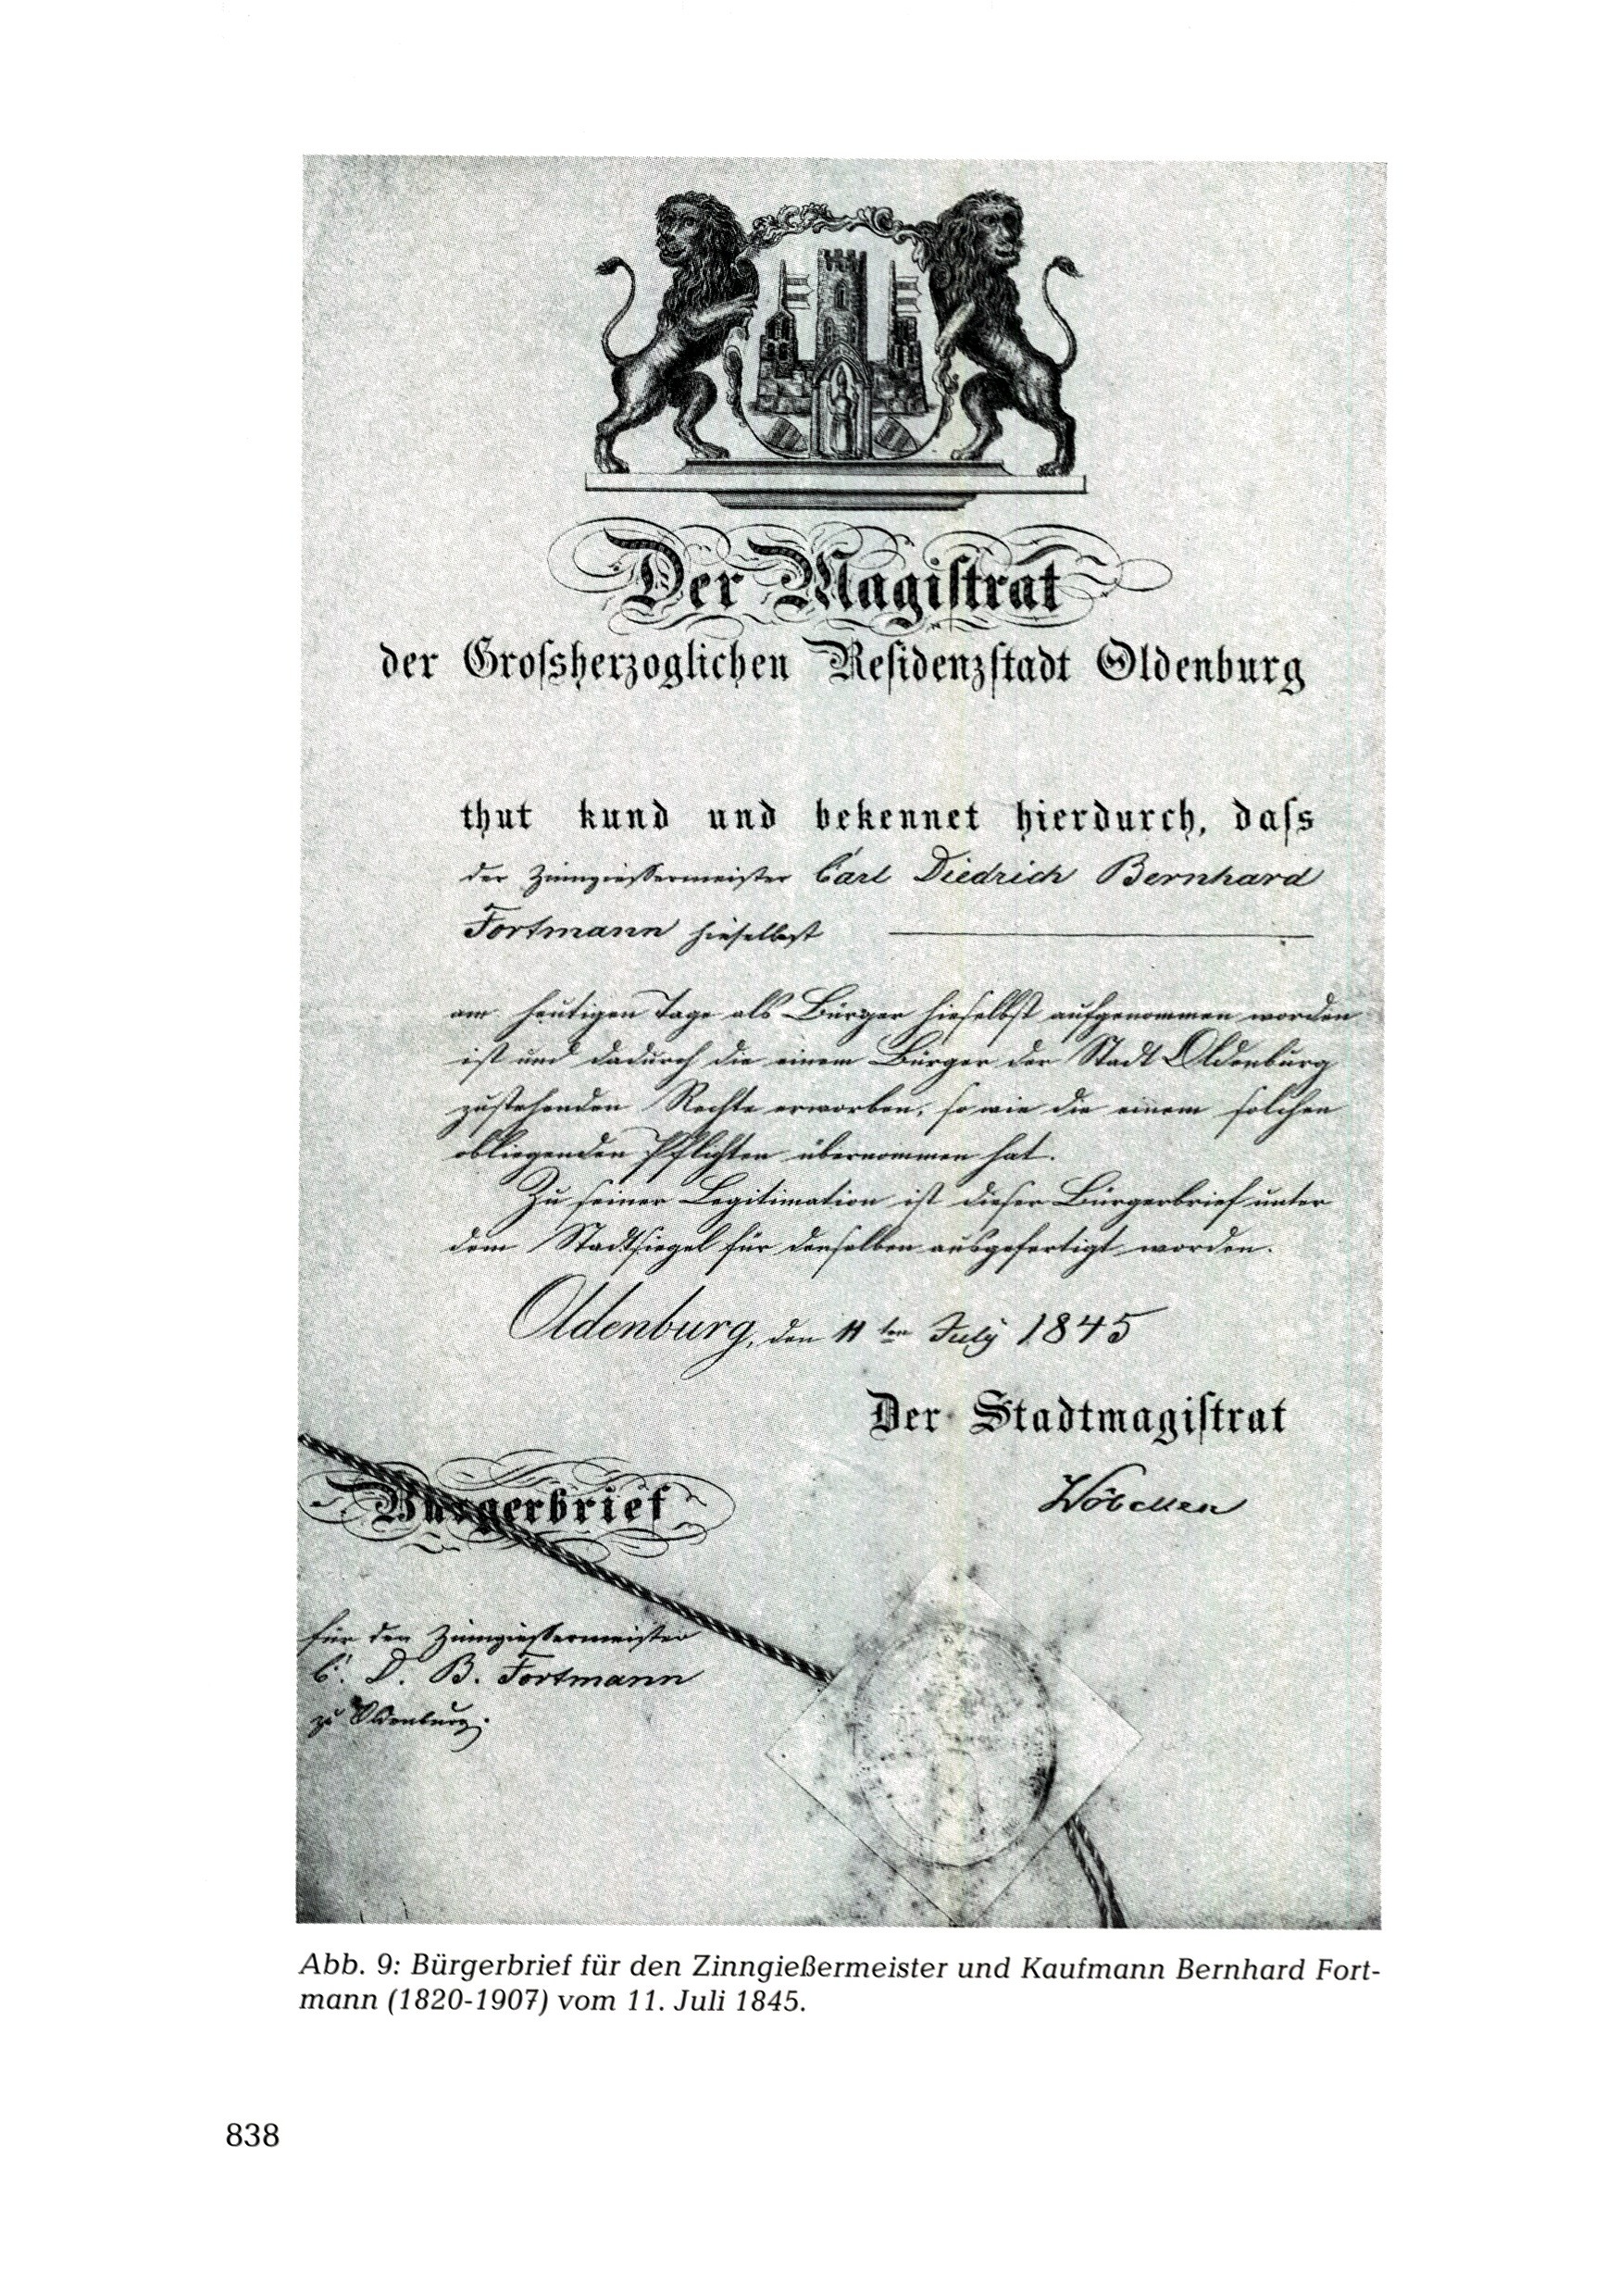 Der Magistrat
der Grossherzoglichen Residenzstadt Oldenburg
thut kund und bekennet hierdurch, dass
der Zinngiessermeister Carl Diedrich Bernhard
Fortmann hieselbst
am heutigen Tage als Bürger hieselbst aufgenommen worden
ist und dadurch die einem Bürger der Stadt Oldenburg
zustehenden Rechte erworben, so wie die einem solchen
obliegenden Pflichten übernommen hat.
Zu seiner Legitimation ist dieser Bürgerbrief unter
dem Stadtsiegel für denselben ausgefertigt worden.
Oldenburg, den 11ten July 1845
Der Stadtmagistrat
Wöbcken
Bürgerbrief
für den Zinngiessermeister
C. D. B. Fortmann
zu Oldenburg.
Abb. 9: Bürgerbrief für den Zinngießermeister und Kaufmann Bernhard Fort-
mann (1820-1907) vom 11. Juli 1845.
838